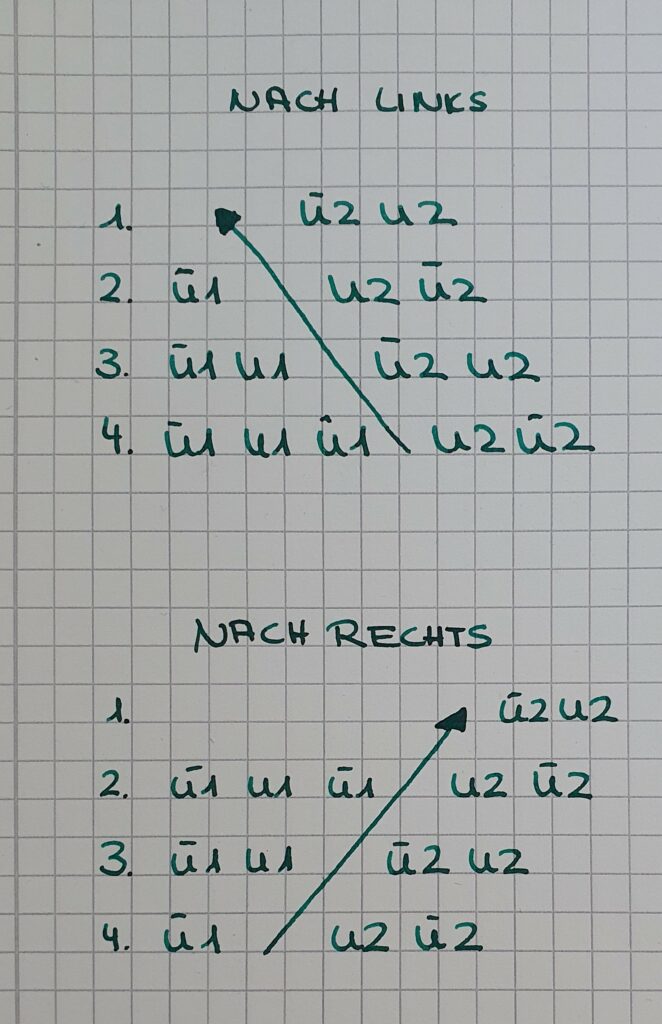 NACH LINKS
1. ū2 u2
2. ū1 u2 ū2
3. ū1 u1 ū2 u2
4. ū1 u1 ū1 u2 ū2
NACH RECHTS
1. ū2 u2
2. ū1 u1 ū1 u2 ū2
3. ū1 u1 ū2 u2
4. ū1 u2 ū2